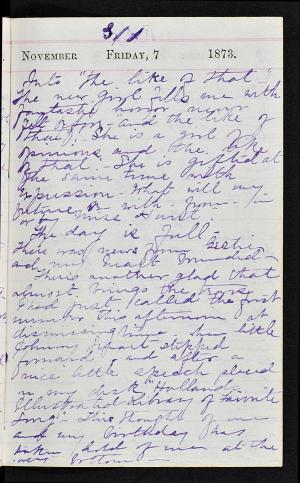 311
NOVEMBER FRIDAY, 7 1873.
Into "the like of that"
The new girl fills me with
fantastic horror never
"and the like of
that". She is a girl of
opinions and the like
of that - She is gifted at
the same time with
expression. What will my
with
or Miss
The day is full.
There was news from Gertie
and my heart
There's another glad that
almost brings the
I had just called the first
number this afternoon at
dismissing time when little
Johnny stepped
forward, and after a
nice little speech placed
on my desk "Holland.
Illustrated Library of Favorite
Song" This thought of me
and my birthday has
taken hold of me at the
very bottom